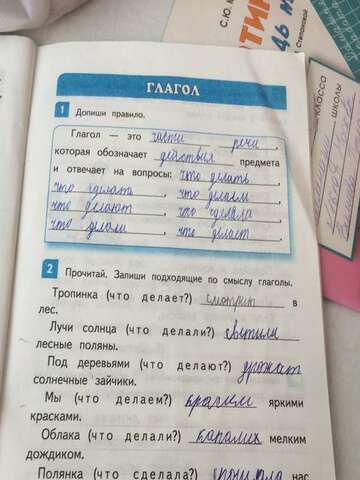 ГЛАГОЛ
1 Допиши правило.
Глагол — это части речи,
которая обозначает действия предмета
и отвечает на вопросы: что делать,
что сделать, что делаем,
что делают, что сделала,
что делали, что делает.
2 Прочитай. Запиши подходящие по смыслу глаголы.
Тропинка (что делает?) смотрит в
лес.
Лучи солнца (что делали?) светили
лесные поляны.
Под деревьями (что делают?) дрожат
солнечные зайчики.
Мы (что делаем?) красим яркими
красками.
Облака (что делали?) капали мелким
дождиком.
Полянка (что сделала?) нас
С.Ю. К
Степановой
класса
школы